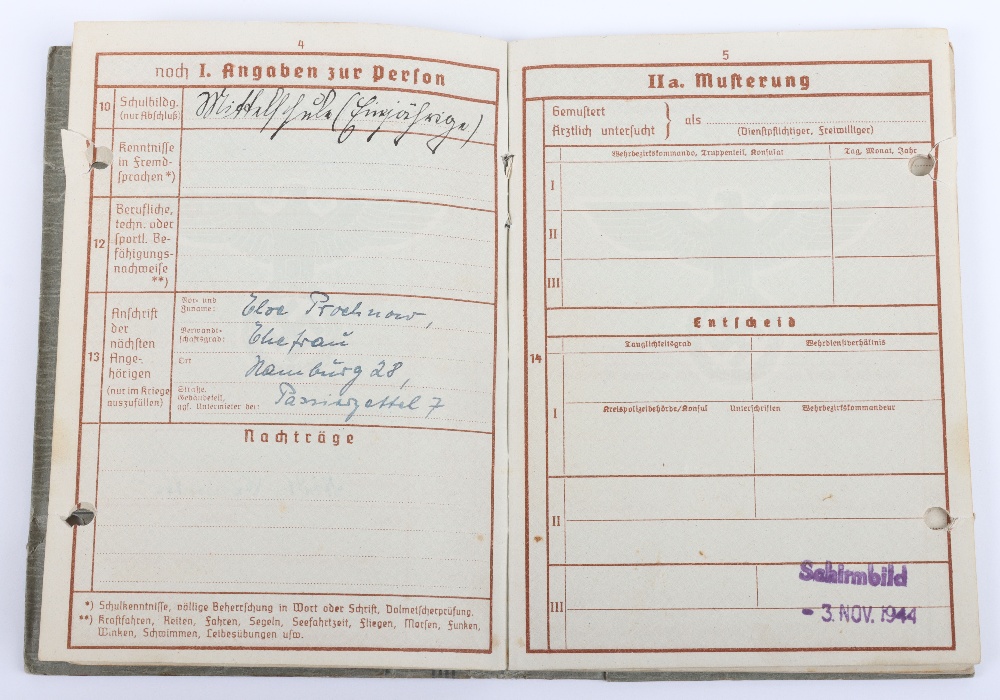 4
noch I. Angaben zur Person
10 Schulbildg. (nur Abschluß) Mittelschule (Einjährige)
Kenntnisse
in Fremd-
sprachen *)
12
Berufliche,
techn. oder
sportl. Be-
fähigungs-
nachweise
**)
13
Anschrift
der
nächsten
Ange-
hörigen
(nur im Kriege
auszufüllen)
Vor- und
Zuname: Prochnow,
Verwandt-
schaftsgrad: Ehefrau
Ort Hamburg 28,
Straße,
Gebäudeteil,
ggf. Untermieter bei: 7
Nachträge
*) Schulkenntnisse, völlige Beherrschung in Wort oder Schrift, Dolmetscherprüfung.
**) Kraftfahren, Reiten, Fahren, Segeln, Seefahrtzeit, Fliegen, Morsen, Funken,
Winken, Schwimmen, Leibesübungen usw.
5
IIa. Musterung
Gemustert
Ärztlich untersucht } als
(Dienstpflichtiger, Freiwilliger)
Wehrbezirkskommando, Truppenteil, Konsulat Tag, Monat, Jahr
I
II
III
Entscheid
14
Tauglichkeitsgrad Wehrdienstverhältnis
I
Kreispolizeibehörde/Konsul Unterschriften Wehrbezirkskommandeur
II
III
Schirmbild
- 3. NOV. 1944